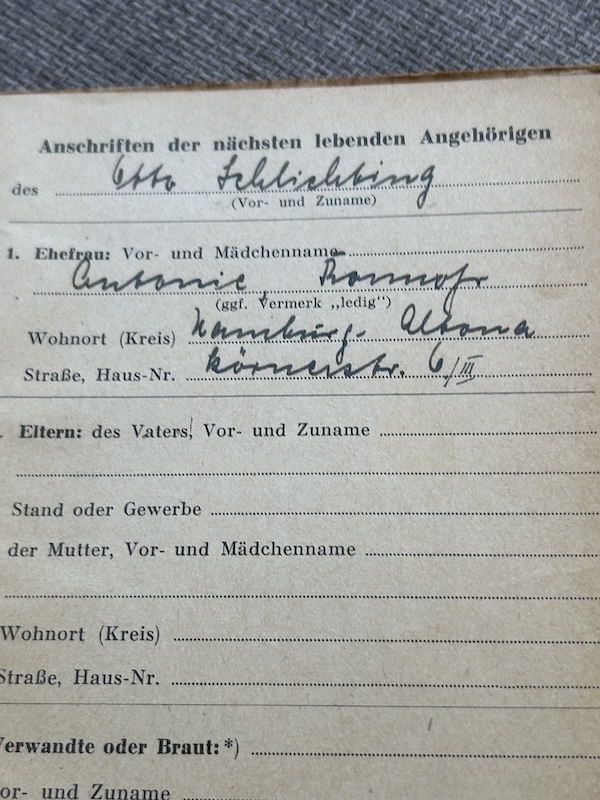 Anschriften der nächsten lebenden Angehörigen
des Otto Schlichting
(Vor- und Zuname)
1. Ehefrau: Vor- und Mädchenname
Antonie
(ggf. Vermerk „ledig")
Wohnort (Kreis) Hamburg- Altona
Straße, Haus-Nr. Körnerstr. 6/III
. Eltern: des Vaters, Vor- und Zuname
Stand oder Gewerbe
der Mutter, Vor- und Mädchenname
Wohnort (Kreis)
Straße, Haus-Nr.
Verwandte oder Braut:*)
or- und Zuname